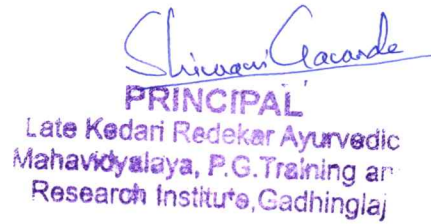 PRINCIPAL
Late Kedari Redekar Ayurvedic
Mahavidyalaya, P.G.Training an
Research Institute,Gadhinglaj